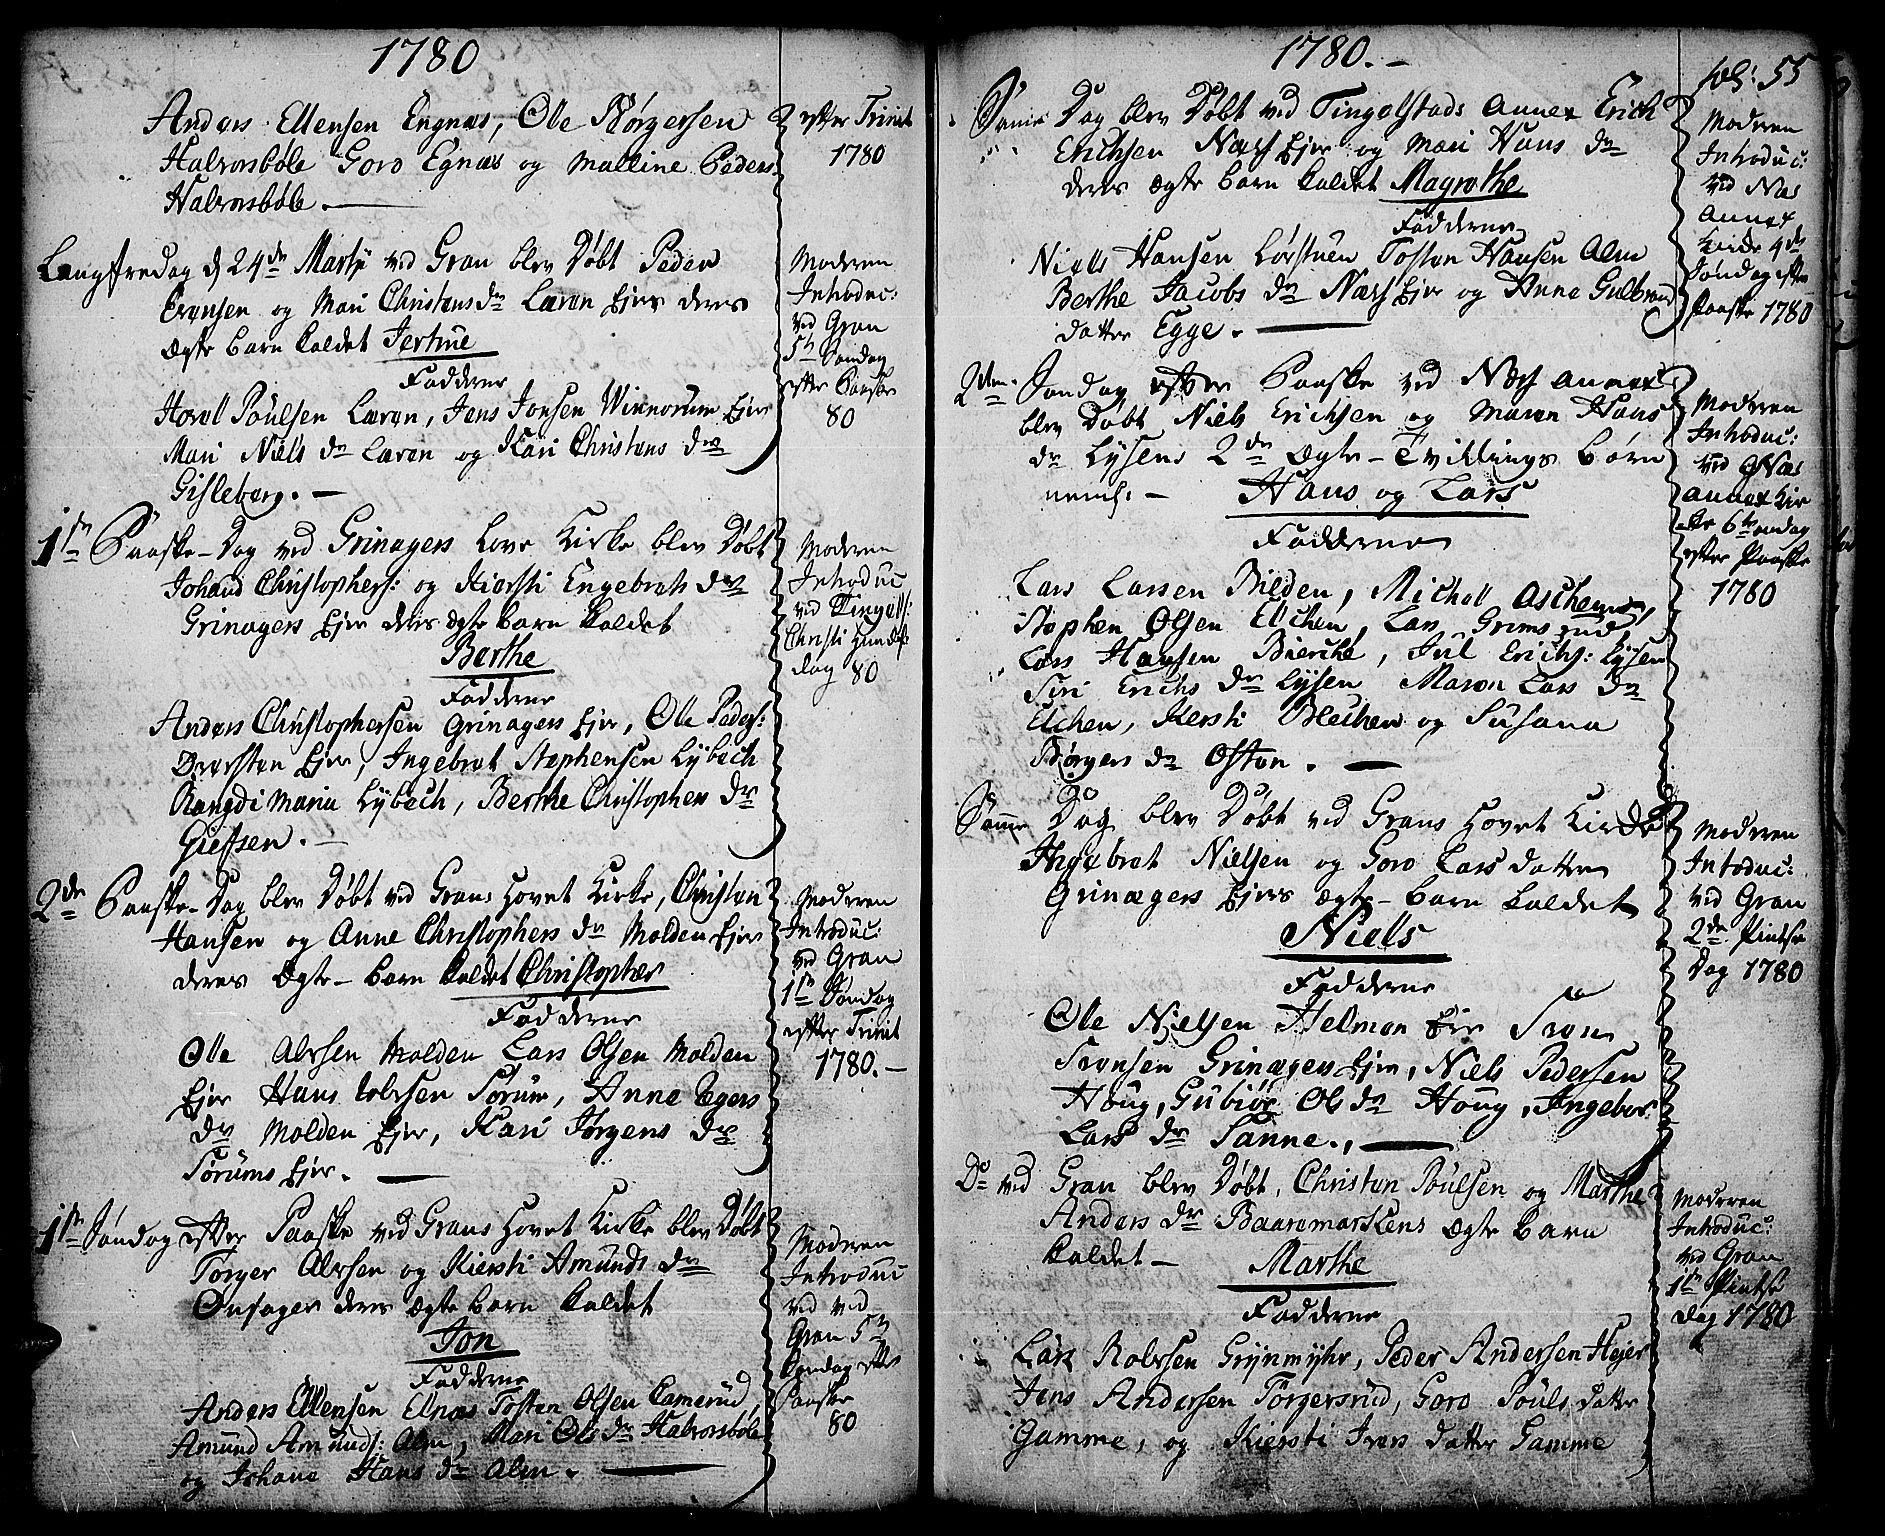 1780
Anders Ellensen Engnæs, Ole Børgersen
Halvorsbøle Goro Egnæs og Malline Peders
Halvorsbøle.
efter Trinit
1780
Langfredag d 24de Martij ved Gran blev Døbt Peder
Evensen og Mari Christens dr Læren Ejer deres
ægte barn kaldet Jertrue
Fadderne
Poulsen Læren, Jens Jonsen Winnorum Ejer
Mari Niels dr Læren og Kari Christens dr
Gisleberg.
Moderen
Introduc:
ved Gran
5te Søndag
efter Paaske
80
1ste Paaske-Dag ved Grinagers Love Kirke blev Døbt
Johand Christophers: og Kiersti Engebrets dr
Grinagers Ejer deres ægte barn kaldet
Berthe
Fadderne
Anders Christophersen Grinagers Ejer, Ole Peders:
Ejer, Ingebret Stephensen Lybech
Rangdi Maria Lybech, Berthe Christophers dr
Giefsen.
Moderen
Introduc
ved Tingels:
Christi Himelf:
dag 80
2den Paaske-Dag blev Døbt ved Grans Hovet Kirke, Christen
Hansen og Anne Christophers dr Molden Ejer
deres Ægte-barn kaldet Christopher
Fadderne
Ole Alvsen Molden Lars Olsen Molden
Ejer Hans Sørum, Anne
dr Molden Ejer, Kari Jørgens dr
Sørums Ejer.
Moderen
Introduc:
ved Gran
1ste Søndag
efter Trinit
1780.-
1ste Søndag efter Paaske ved Grans Hovet Kirke blev Døbt
Torger Alvsen og Kiersti Amunds dr
Onsager deres ægte barn kaldet
Jon
Fadderne
Anders Ellensen Elnæs Tosten Olsen Camerud,
Amund Amunds: Alm, Mari Ols dr Halvorsbøle
og Johane Hans dr Alm.
Moderen
Introduc
ved ved
Gran 5te
Søndag efter
Paaske
80
1780.-
fol: 55
Samme Dag blev Døbt ved Tingelstads Annex Erich
Erichsen Næss Ejer og Mari Hans dr
deres ægte barn kaldet Magrethe
Fadderne
Niels Hansen Lørstuen Tosten Hansen Alm
Berthe Jacobs dr Næss Ejer og Anne Gulbrand
datter Egge.
Moderen
Introduc:
ved Næs
Annex
Kirke 4de
Søndag efter
Paaske 1780
2den Søndag efter Paaske ved Næss Annex
blev Døbt Niels Erichsen og Maren Hans
dr Lysens 2de Ægte-Tvillings Børn
neml:- Hans og Lars
Fadderne
Lars Larsen Bilden, Michell Aschem,
Stephen Olsen Elchen, Lars Grimsrud
Lars Hansen Bierche, Jul Erichs: Lysen
Siri Erichs dr Lysen Maren Lars dr
Elchen, Kersti Blechen og Susana
Børgers dr Osten.
Moderen
Introduc:
ved Næs
Annex Kir
ke 6te Søndag
efter Paaske
1780
Samme Dag blev Døbt ved Grans Hovet Kirke
Ingebret Nielsen og Goro Lars datter
Grinagers Ejers Ægte-barn kaldet
Niels
Fadderne
Ole Nielsen Helmen Ejer Sven
Svensen Grinagers Ejer, Niels Pedersen
Houg, Gubiør Ols dr Houg, Ingebor
Lars dr Sanne.,
Moderen
Introduc:
ved Gran
2den Pintse
Dag 1780
Do ved Gran blev Døbt, Christen Poulsen og Marthe
Anders dr Baaremarckens Ægte barn
kaldet- Marthe
Fadderne
Lars Rolvsen Grynmyhr, Peder Andersen Hejer
Jens Andersen Torgersrud, Goro Pouls datter
Gamme, og Kiersti Ivers datter Gamme
Moderen
Introduc:
ved Gran
1ste Pintse
Dag 1780